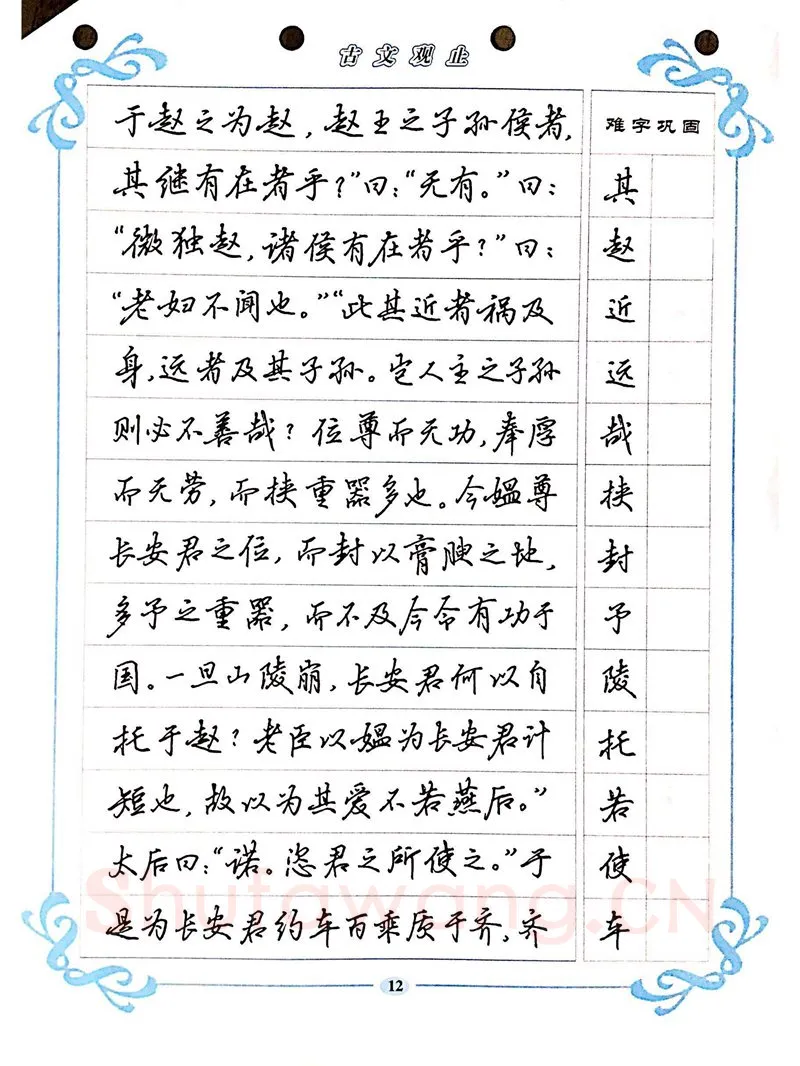 古文观止
于赵之为赵，赵王之子孙侯者，
难字巩固
其继有在者乎？”曰：“无有。”曰：
其
“微独赵，诸侯有在者乎？”曰：
赵
“老妇不闻也。”“此其近者祸及
近
身，远者及其子孙。岂人主之子孙
远
则必不善哉？位尊而无功，奉厚
哉
而无劳，而挟重器多也。今媪尊
挟
长安君之位，而封以膏腴之地，
封
多予之重器，而不及今令有功于
予
国。一旦山陵崩，长安君何以自
陵
托于赵？老臣以媪为长安君计
托
短也，故以为其爱不若燕后。”
若
太后曰：“诺。恣君之所使之。”于
使
是为长安君约车百乘质于齐，齐
车
Shufawang.CN
12